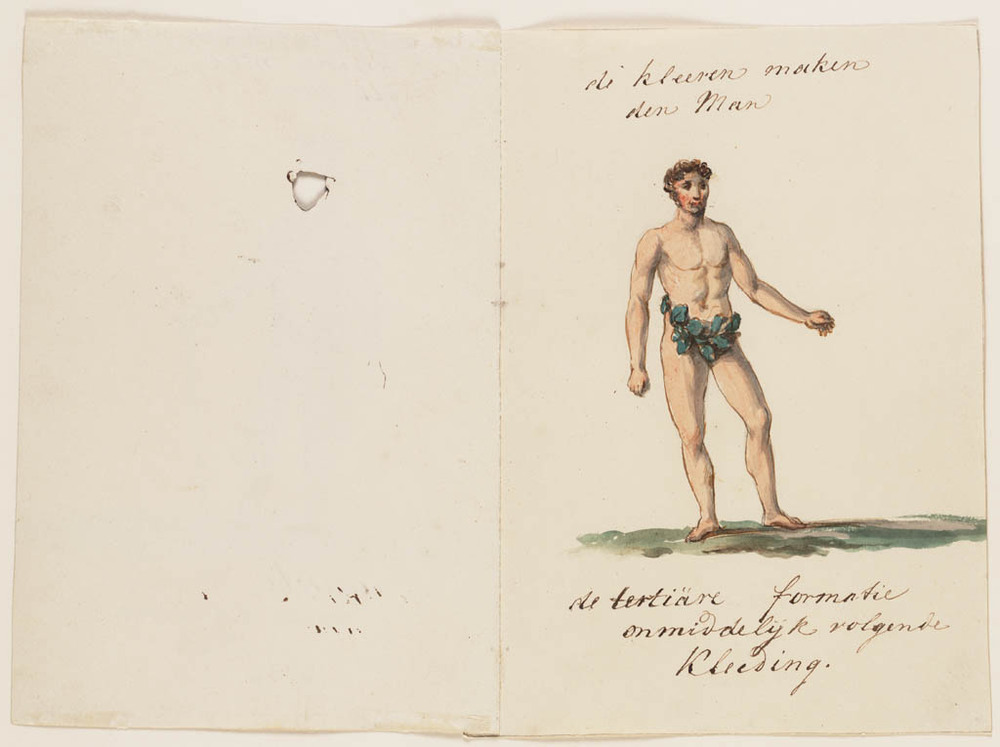 di kleeren maken
den Man
de tertiäre formatie
onmiddelijk volgende
Kleeding.